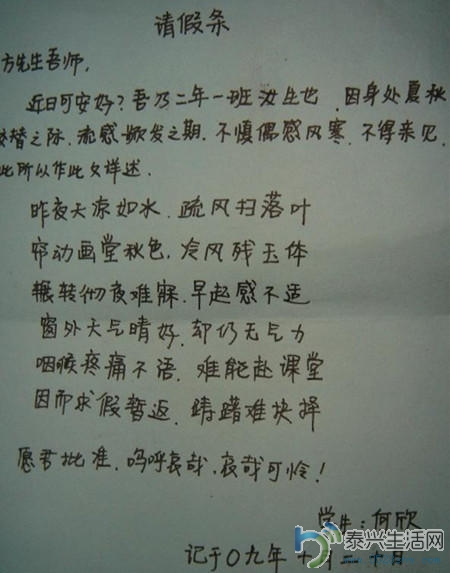 请假条
方先生吾师,
近日可安好?吾乃二年一班汝生也 因身处夏秋
交替之际.流感频发之期.不慎偶感风寒.不得来见.
此所以作此文详述.
昨夜天凉如水.疏风扫落叶
帘动画堂秋色.冷风残玉体
辗转彻夜难寐.早起感不适
窗外天气晴好.却仍无气力
咽喉疼痛不语.难能赴课堂
因而求假暂返.踌躇难抉择
愿君批准.呜呼哀哉.哀哉可怜!
学生:何欣
记于〇九年十月二十日
泰兴生活网